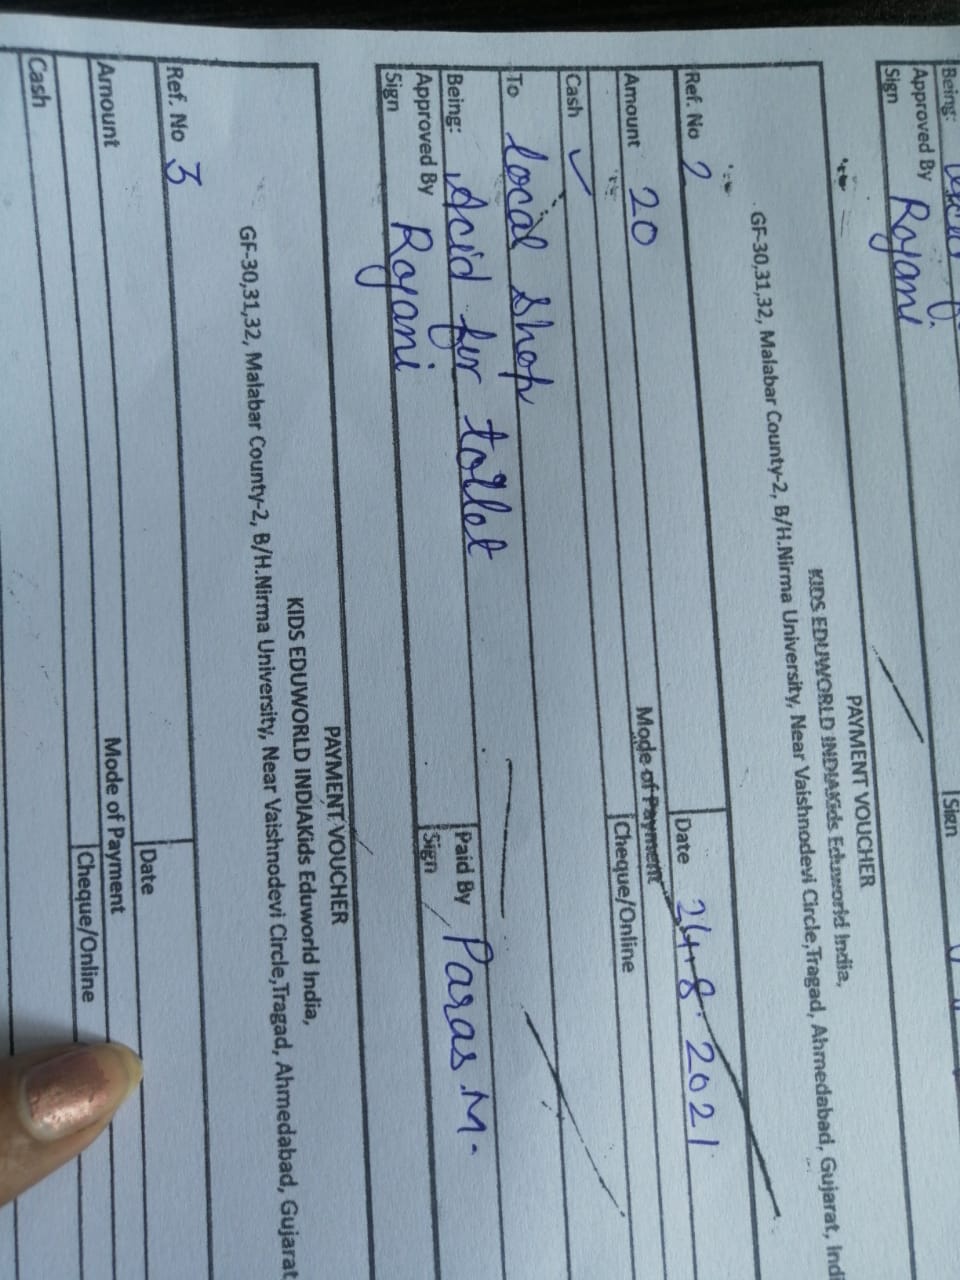 Being:
Approved By Rojani
Sign
Sign
PAYMENT VOUCHER
KIDS EDUWORLD INDIAKids Eduworld India,
GF-30,31,32, Malabar County-2, B/H.Nirma University, Near Vaishnodevi Circle,Tragad, Ahmedabad, Gujarat, Ind
Ref. No 2 Date 24.8.2021
Amount 20 Mode of Payment
Cash ✓ Cheque/Online
To local shop
Being: Acid for toilet Paid By Paras.M.
Approved By Rojani Sign
Sign
PAYMENT VOUCHER
KIDS EDUWORLD INDIAKids Eduworld India,
GF-30,31,32, Malabar County-2, B/H.Nirma University, Near Vaishnodevi Circle,Tragad, Ahmedabad, Gujarat,
Ref. No 3 Date
Amount Mode of Payment
Cash Cheque/Online